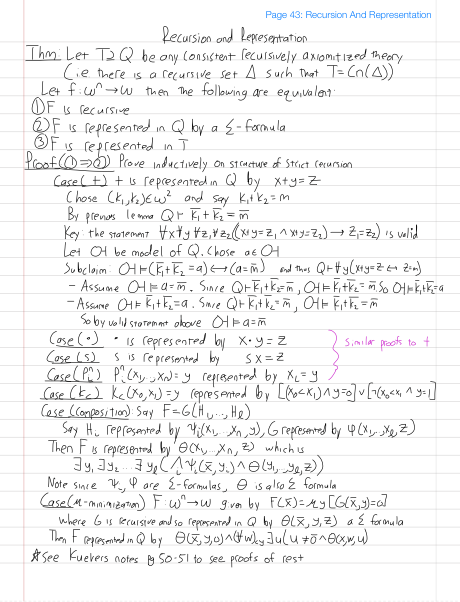 Page 43: Recursion And Representation
Recursion and Representation
Thm: Let T⊇Q be any consistent recursively axiomitized theory
(i.e there is a recursive set Δ such that T=Cn(Δ))
Let f:ωⁿ→ω then the following are equivalent:
① F is recursive
② F is represented in Q by a Σ-formula
③ F is represented in T
Proof(①⇒②) Prove inductively on structure of strict recursion
Case(+) + is represented in Q by x+y=z
Chose (k₁,k₂)∈ω² and say k₁+k₂=m
By previous lemma Q⊢ k̄₁+k̄₂=m̄
Key: the statement ∀x∀y∀z₁∀z₂((x+y=z₁ ∧ x+y=z₂)→ z₁=z₂) is valid
Let OH be model of Q. Chose a∈OH
Subclaim: OH⊨(k̄₁+k̄₂=a)↔(a=m̄) and thus Q⊢∀y(x+y=z↔z=m)
- Assume OH⊨a=m̄. Since Q⊢k̄₁+k̄₂=m̄, OH⊨k̄₁+k̄₂=m̄ So OH⊨k̄₁+k̄₂=a
- Assume OH⊨k̄₁+k̄₂=a. Since Q⊢k̄₁+k̄₂=m̄, OH⊨k̄₁+k̄₂=m̄
So by valid statement above OH⊨a=m̄
Case(•) • is represented by x•y=z
Case(s) s is represented by sx=z
similar proofs to +
Case(Pᵢⁿ) Pᵢⁿ(x₁,...,xₙ)=y represented by xᵢ=y
Case(K<) K<(x₀,x₁)=y represented by [(x₀<x₁)∧y=0]∨[¬(x₀<x₁ ∧ y=1]
Case(composition): Say F=G(H₁,...,Hℓ)
Say Hᵢ represented by Ψᵢ(x₁,...,xₙ,y), G represented by φ(x₁,...,xℓ,z)
Then F is represented by Θ(x₁,...,xₙ,z) which is
∃y₁∃y₂...∃yℓ(⋀Ψᵢ(x̄,yᵢ)∧Θ(y₁,...,yℓ,z))
Note since Ψᵢ,φ are Σ-formulas, Θ is also Σ formula
Case(μ-minimization) F:ωⁿ→ω given by F(x̄)=μy[G(x̄,y)=0]
where G is recursive and so represented in Q by Θ(x̄,y,z) a Σ formula
Then F represented in Q by Θ(x̄,y,0)∧(∀w)<y ∃u(u≠0̄∧Θ(x,w,u)
☆See Kuekers notes pg 50-51 to see proofs of rest